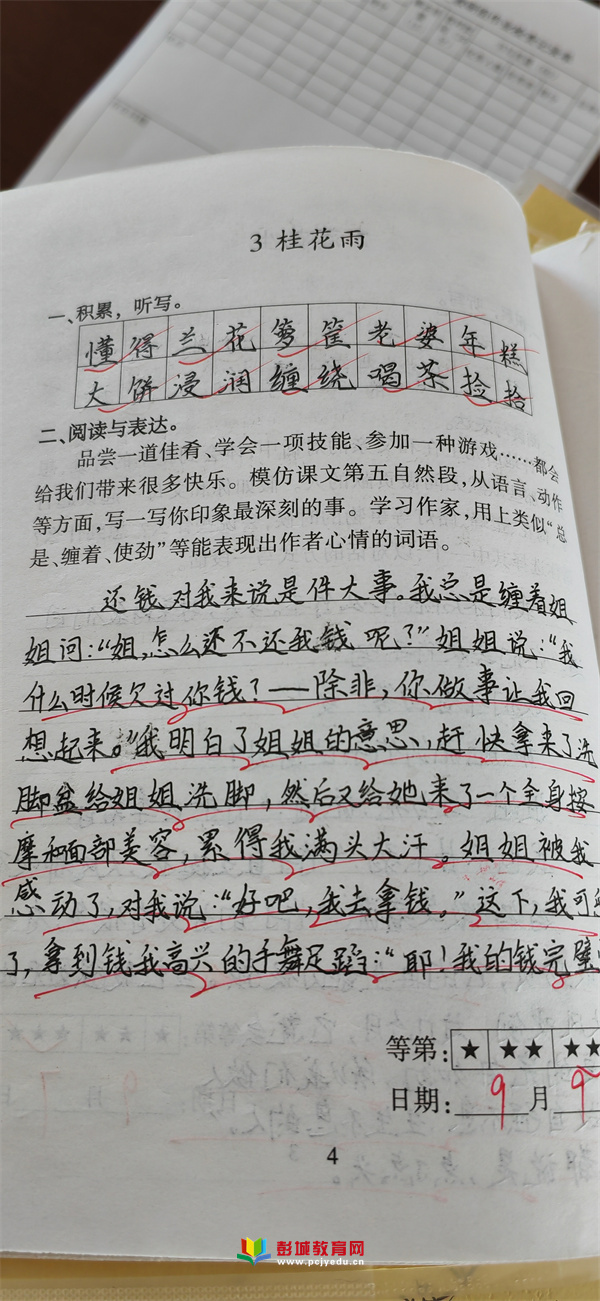 3 桂花雨
一、积累，听写。
懂得兰花箩筐老婆年糕
大饼浸润缠绕喝茶捡拾
二、阅读与表达。
品尝一道佳肴、学会一项技能、参加一种游戏……都会
给我们带来很多快乐。模仿课文第五自然段，从语言、动作
等方面，写一写你印象最深刻的事。学习作家，用上类似“总
是、缠着、使劲”等能表现出作者心情的词语。
还钱对我来说是件大事。我总是缠着姐
姐问：“姐，怎么还不还我钱呢？”姐姐说：“我
什么时候欠过你钱？——除非，你做事让我回
想起来。”我明白了姐姐的意思，赶快拿来了洗
脚盆给姐姐洗脚，然后又给她来了一个全身按
摩和面部美容，累得我满头大汗。姐姐被我
感动了，对我说：“好吧，我去拿钱。”这下，我可
了，拿到钱我高兴的手舞足蹈：“耶！我的钱完璧
等第：★ ★★ ★★
日期： 9 月 9
4
彭城教育网
www.pcjyedu.cn